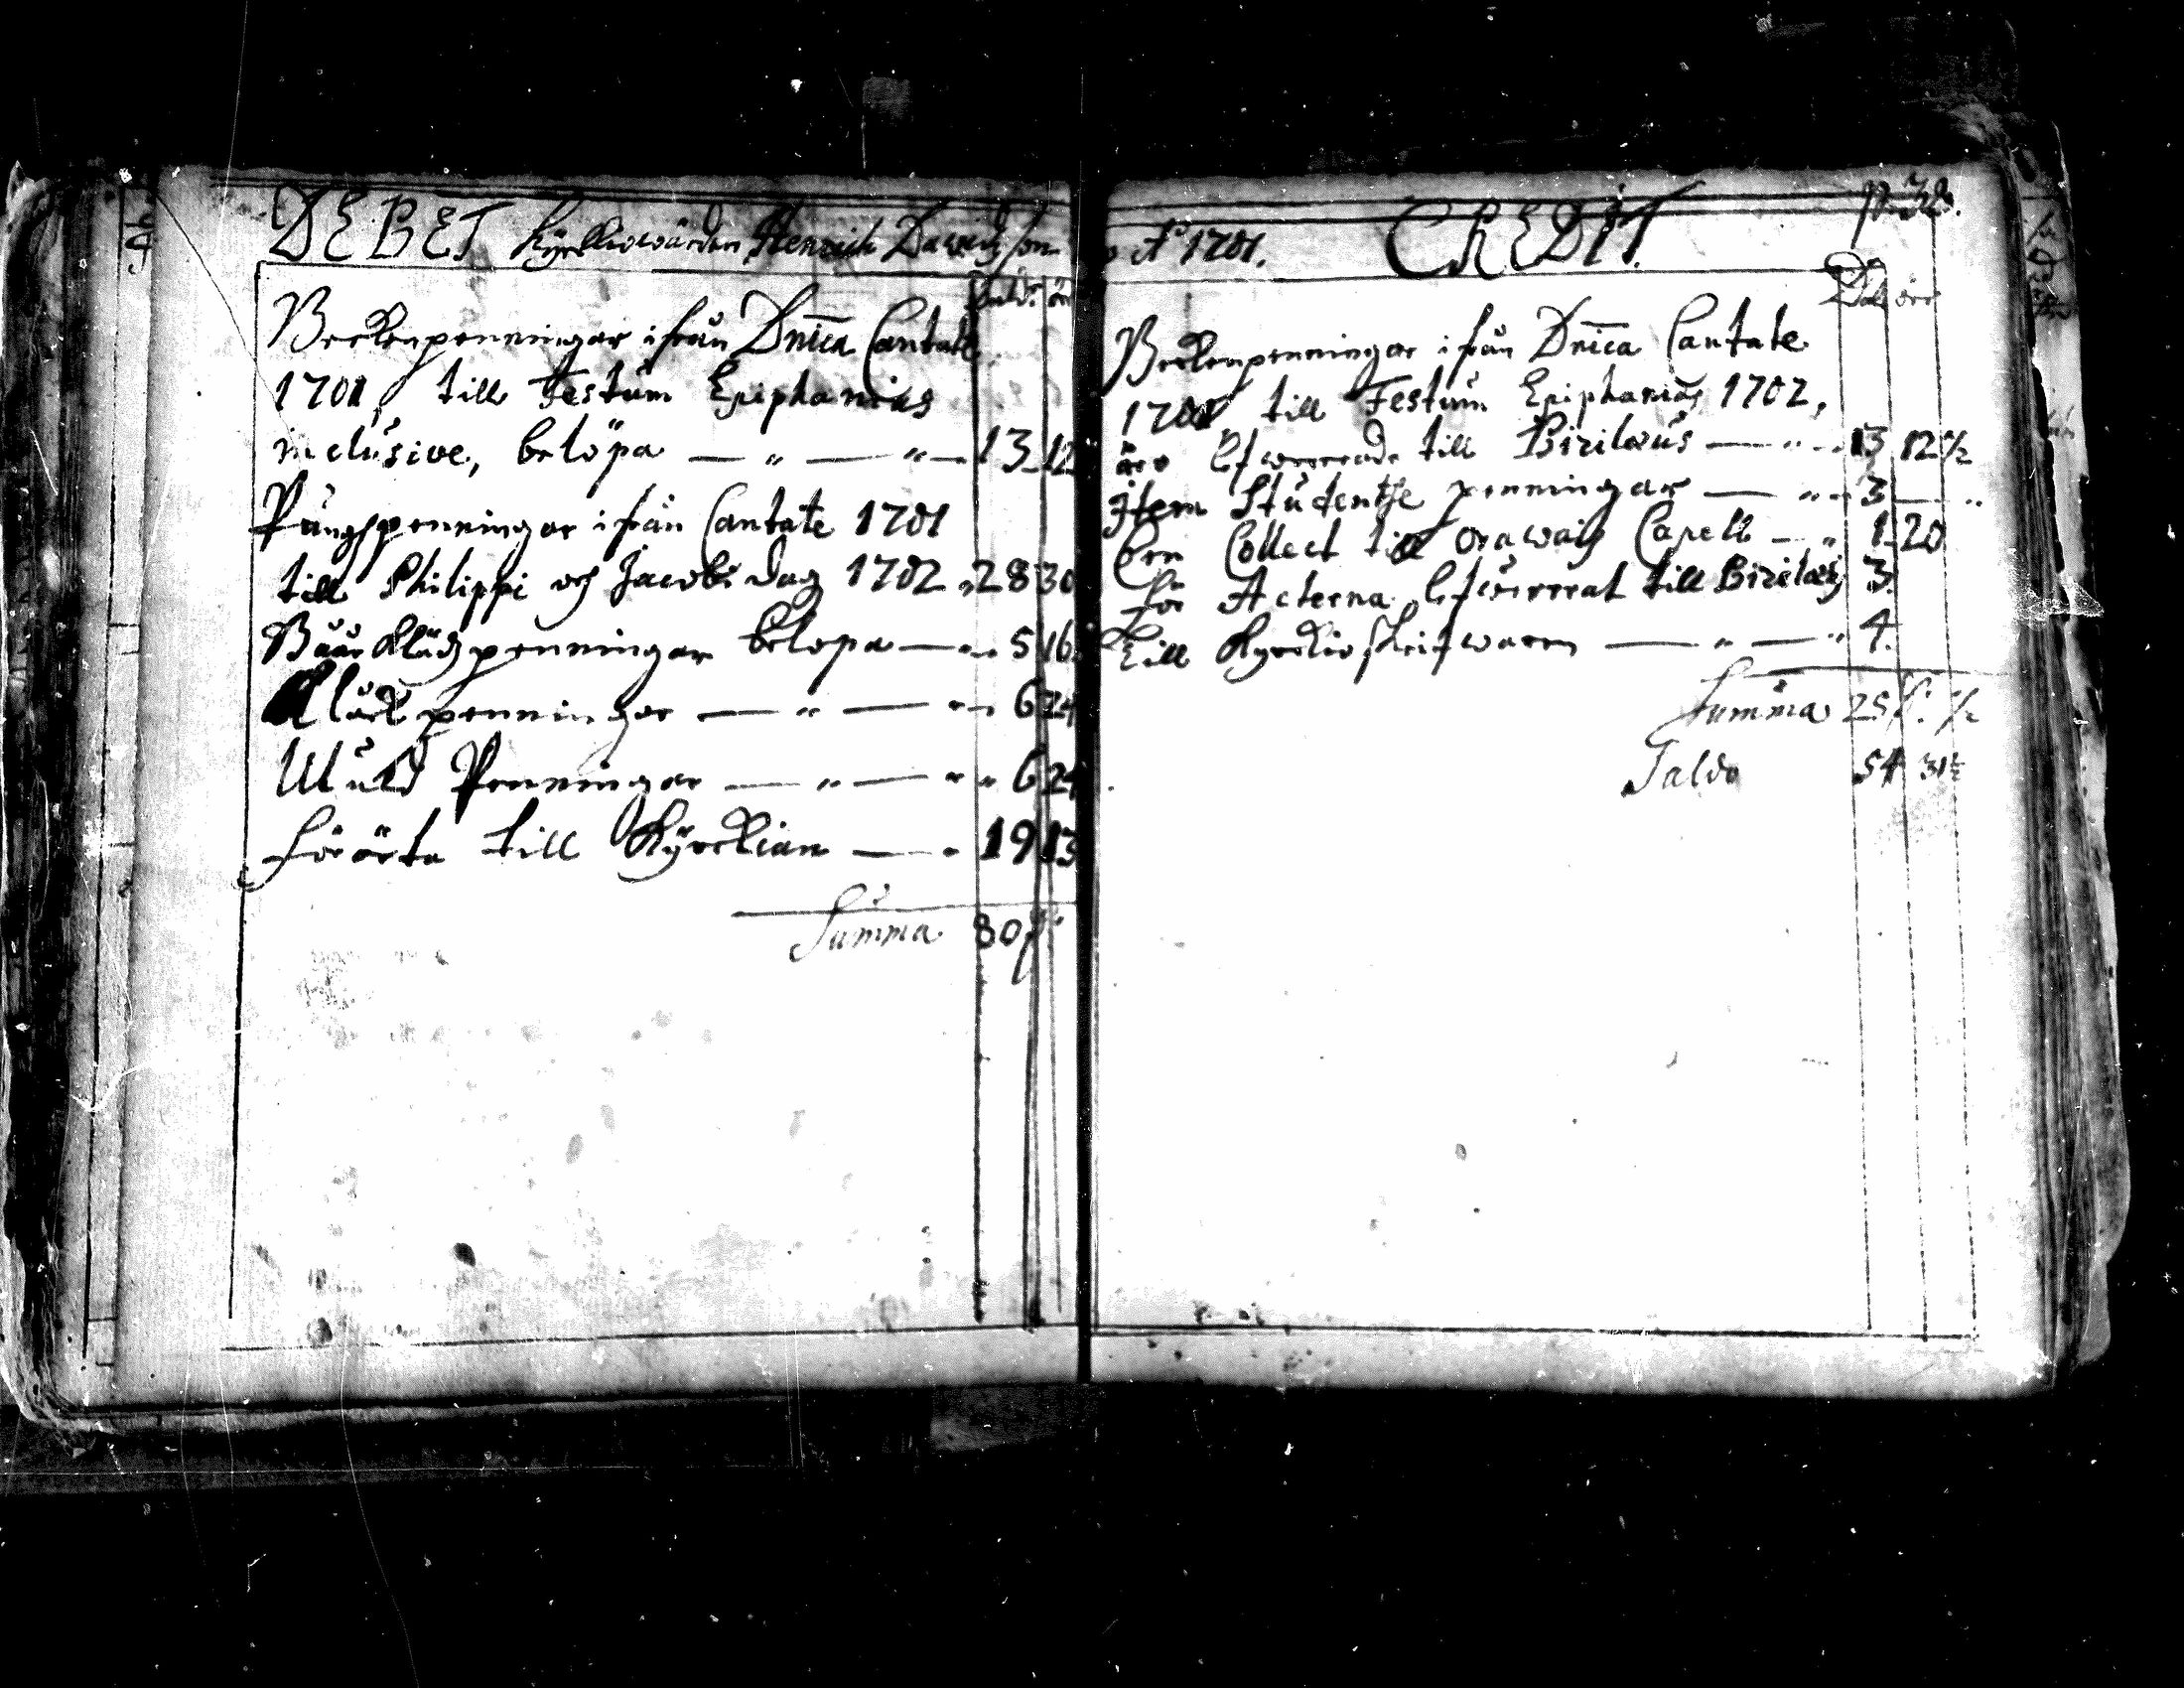 DEBET Kyrkiowärden Henrich Dawidzson
Dalr ör
Beckenpenningar ifrån Dnica Cantate
1701, till Festum Epiphanias
inclusive, belöpa — „ — „ — 13 12
Pungspenningar ifrån Cantate 1701
till Philippi och Jacobi dag 1702 „ 28 30
Båår klädz penningar belopa — „ 5 16
Klåck penningar — „ — „ 6 24
Muld Penningar — „ — „ 6 24
förärta till Kyrckian — „ 19 13
Summa 80
Ao 1701. CREDIT. p. 32.
Dal öre
Beckenpenningar ifrån Dnica Cantate
1701 till Festum Epiphanias 1702,
äre lefwererade till Birilæus — „ 13 12 ½
Item Studentpenningar — „ 3 — „
Een Collect till Orawais Capell — „ 1 20
för Acterna lefwererat till Birilæus 3.
Till Kyrckioskrifwaren — „ — „ 4.
Summa 25 ½
Saldo 54 31½